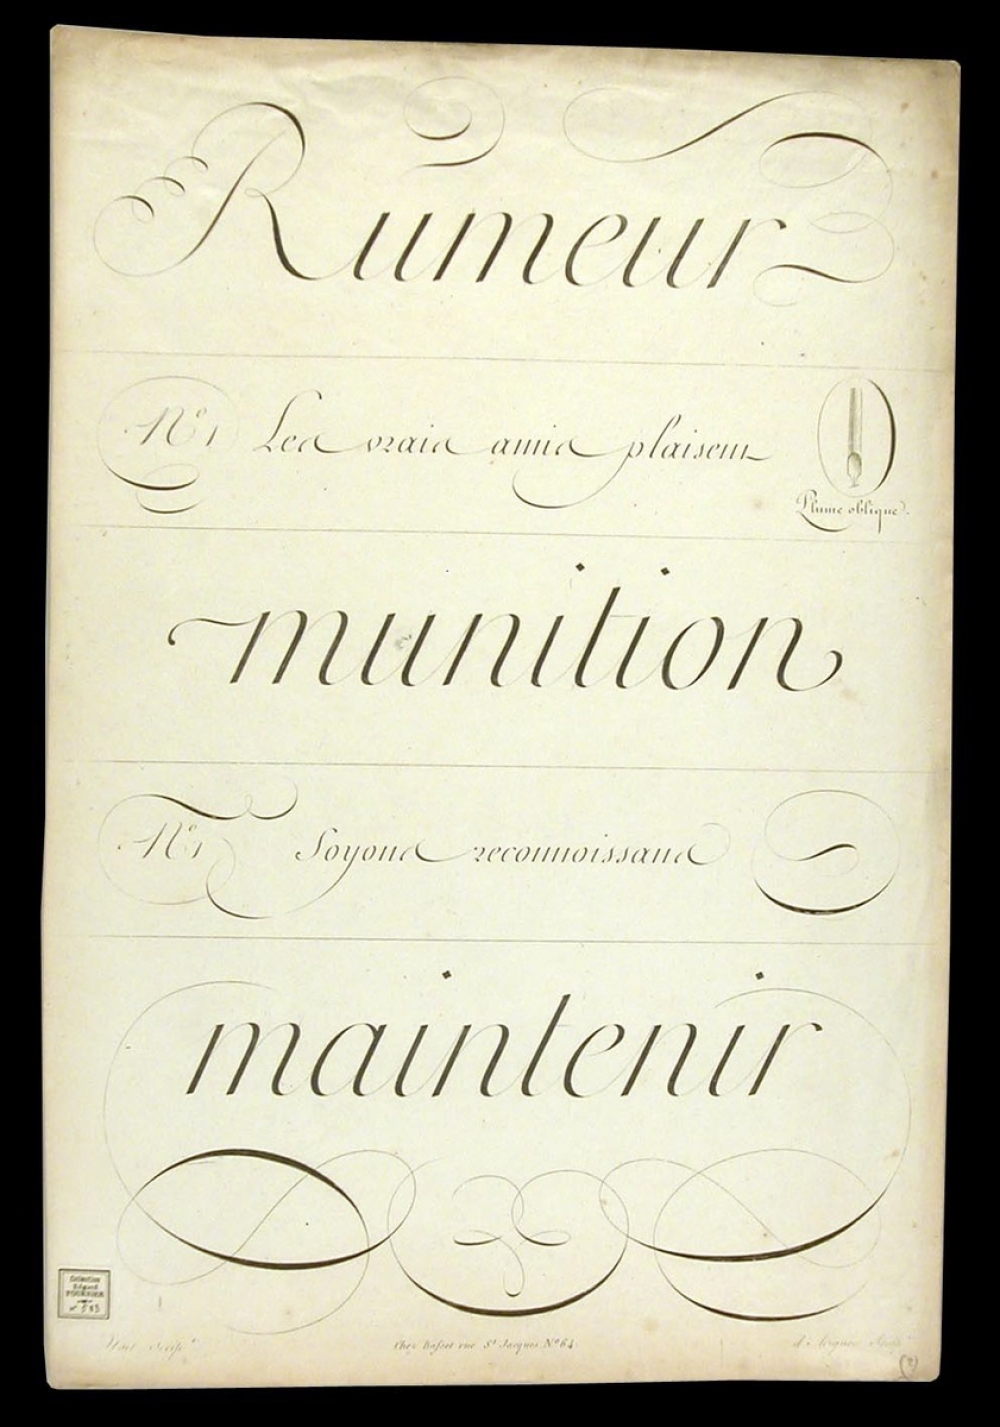 Rumeur
N.º 1 Les vrais amis plaisent
Plume oblique.
munition
N.º 1 Soyons reconnoissans
maintenir
Collection
Edgard
FOURNIER
Chez Basset rue S.t Jacques N.º 64.